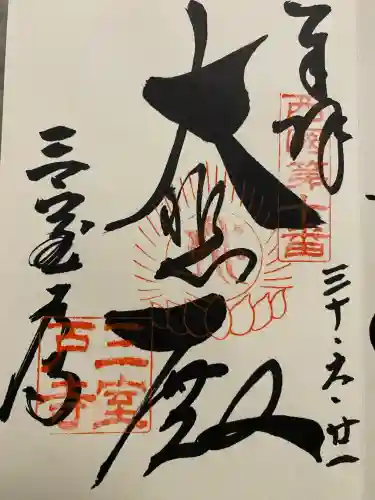 奉拝
西国第十番
三十・六・廿一
大悲殿
三室戸寺
三室戸寺